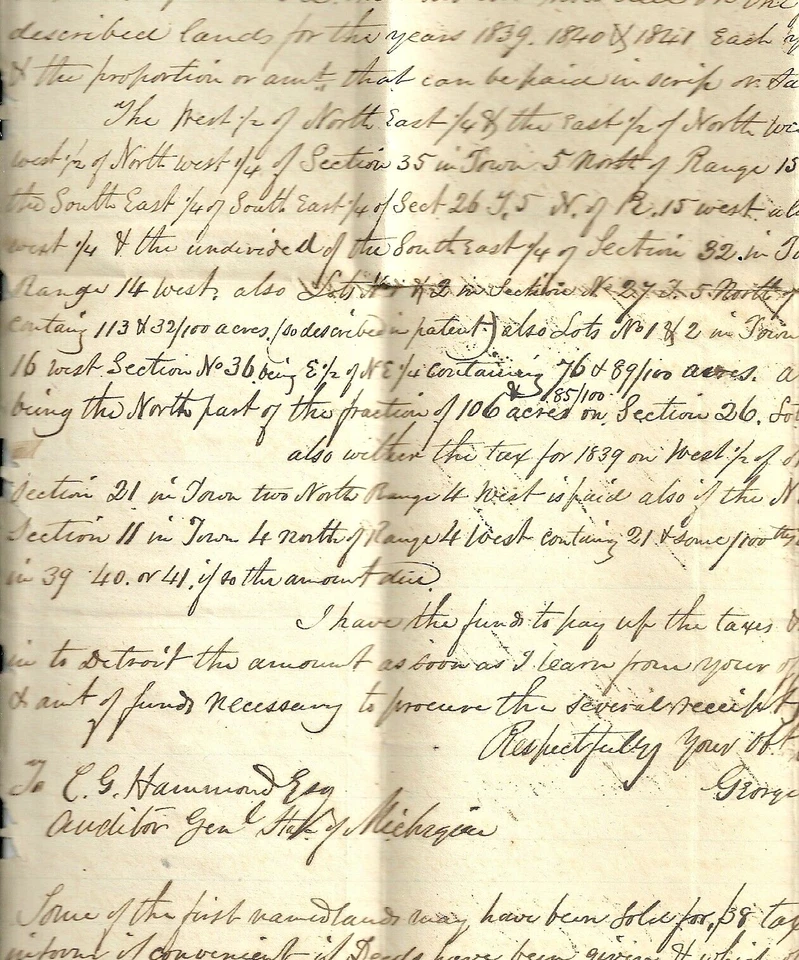 described lands for the years 1839. 1840 & 1841 Each
& the proportion or amt. that can be paid in scrip or
The West 1/2 of North East 1/4 & the East 1/2 of North
west 1/2 of North west 1/4 of Section 35 in Town 5 North of Range 15
the South East 1/4 of South East 1/4 of Sect 26 T. 5 N. of R. 15 west
west 1/4 & the undivided of the South East 1/4 of Section 32. in
Range 14 west. also Lots No 1 & 2 in Section No 27 T. 5 North of
containg 113 & 32/100 acres. (so described in patent) also Lots No 1 & 2 in Town
16 west Section No 36. being E 1/2 of N E 1/4 containing 76 & 89/100 acres. a
being the North part of the fraction of 106 & 85/100 acres on Section 26.
also wether the tax for 1839 on West 1/2 of
Section 21 in Town two North Range 4 West is paid also if the N
Section 11 in Town 4 north of Range 4 West containg 21 & some/100ths
in 39 40. or 41. if so the amount due
I have the funds to pay up the taxes &
in to Detroit the amount as soon as I learn from your of
& amt of funds necessary to procure the several receipts
Respectfully Your Obt
George
To C. G. Hammond Esq
Auditor Genl State of Michigan
Some of the first named lands may have been Sold for 38 tax
inform if convenient if Deeds have been given & which